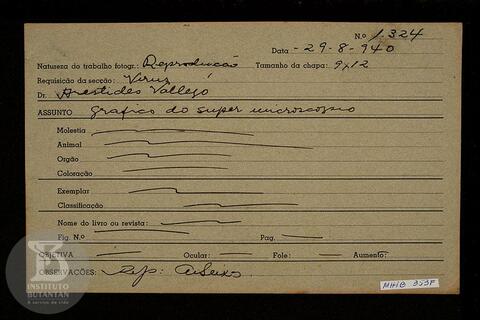 N.o 1.324
Data - 29-8-940
Natureza do trabalho fotogr.: Reproducção
Tamanho da chapa: 9x12
Requisição da secção: Virus
Dr. Arestides Vallejo
ASSUNTO grafico do super microscopio
Molestia
Animal
Orgão
Coloração
Exemplar
Classificação
Nome do livro ou revista:
Fig. N.o Pag.
OBJETIVA Ocular: Fole: Aumento:
OBSERVAÇÕES: Rep:
INSTITUTO
BUTANTAN
A serviço da vida
MHIB